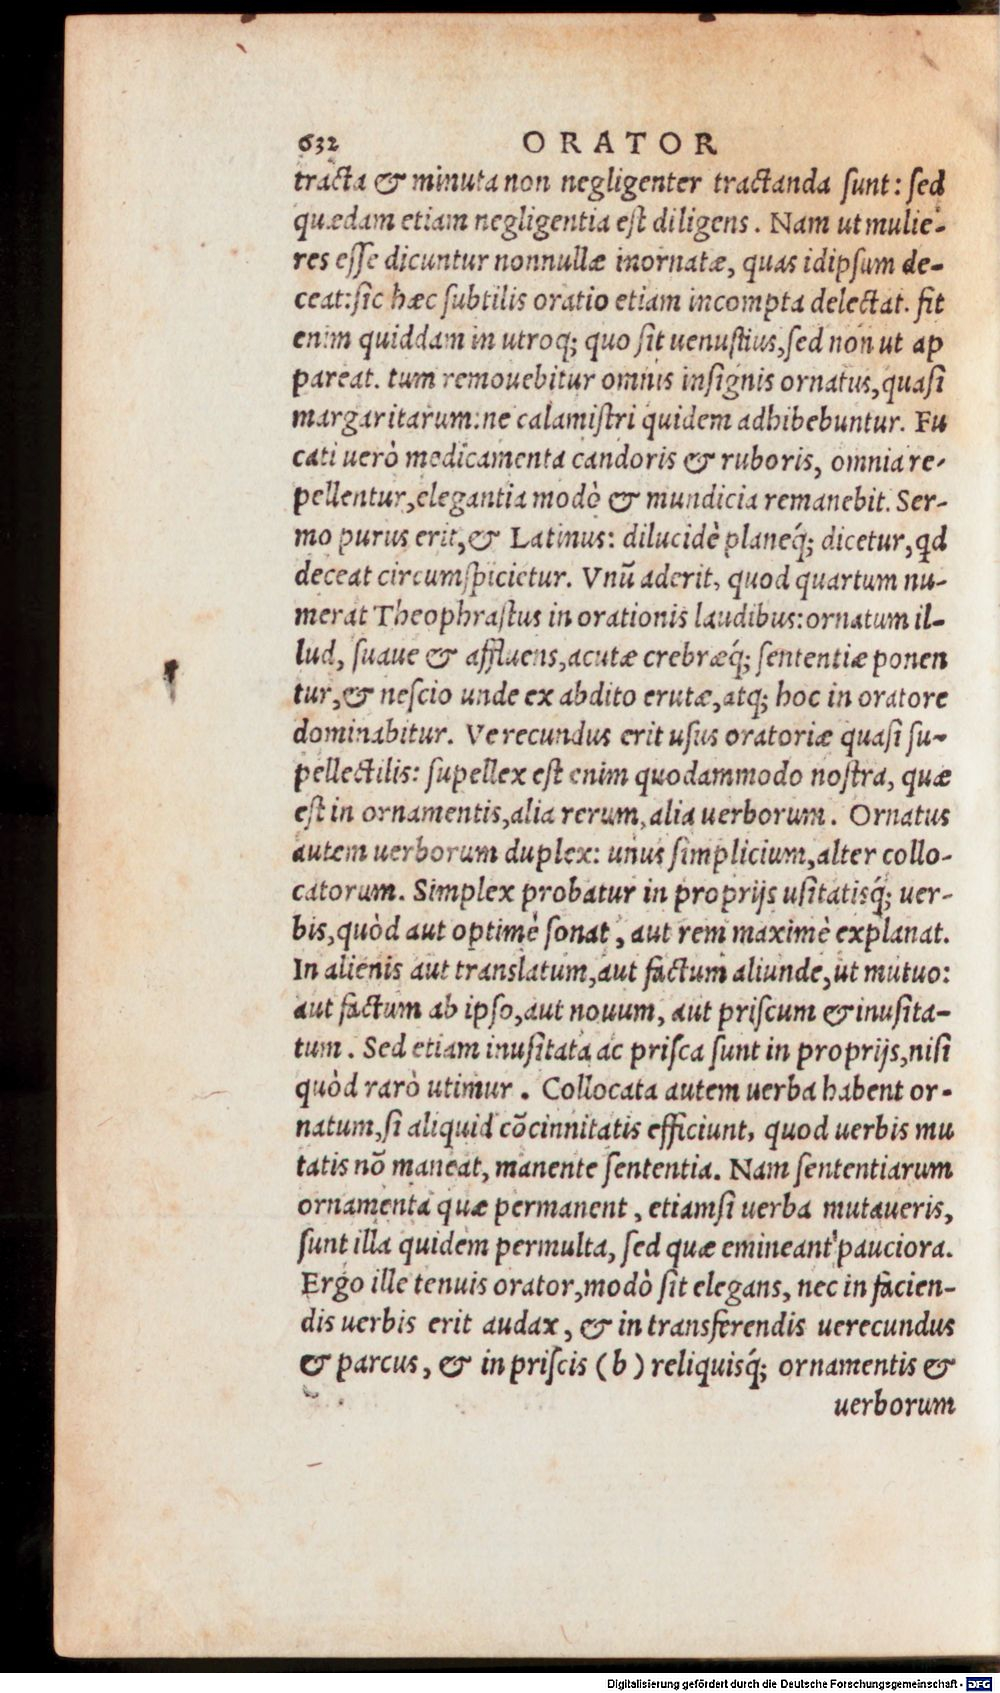 632 ORATOR
tracta & minuta non negligenter tractanda sunt: sed
quædam etiam negligentia est diligens. Nam ut mulie-
res esse dicuntur nonnullæ inornatæ, quas idipsum de-
ceat: sic hæc subtilis oratio etiam incompta delectat. fit
enim quiddam in utroq; quo sit uenustius, sed non ut ap
pareat. tum remouebitur omnis insignis ornatus, quasi
margaritarum: ne calamistri quidem adhibebuntur. Fu
cati uerò medicamenta candoris & ruboris, omnia re-
pellentur, elegantia modò & mundicia remanebit. Ser-
mo purus erit, & Latinus: dilucidè planeq́; dicetur, qd
deceat circumspicietur. Vnū aderit, quod quartum nu-
merat Theophrastus in orationis laudibus: ornatum il-
lud, suaue & affluens, acutæ crebræq́; sententiæ ponen
tur, & nescio unde ex abdito erutæ, atq; hoc in oratore
dominabitur. Verecundus erit usus oratoriæ quasi su-
pellectilis: supellex est enim quodammodo nostra, quæ
est in ornamentis, alia rerum, alia uerborum. Ornatus
autem uerborum duplex: unus simplicium, alter collo-
catorum. Simplex probatur in proprijs usitatisq́; uer-
bis, quòd aut optimè sonat, aut rem maximè explanat.
In alienis aut translatum, aut factum aliunde, ut mutuo:
aut factum ab ipso, aut nouum, aut priscum & inusita-
tum. Sed etiam inusitata ac prisca sunt in proprijs, nisi
quòd rarò utimur. Collocata autem uerba habent or-
natum, si aliquid cōcinnitatis efficiunt, quod uerbis mu
tatis nō maneat, manente sententia. Nam sententiarum
ornamenta quæ permanent, etiamsi uerba mutaueris,
sunt illa quidem permulta, sed quæ emineant pauciora.
Ergo ille tenuis orator, modò sit elegans, nec in facien-
dis uerbis erit audax, & in transferendis uerecundus
& parcus, & in priscis (b) reliquisq́; ornamentis &
uerborum
Digitalisierung gefördert durch die Deutsche Forschungsgemeinschaft - DFG